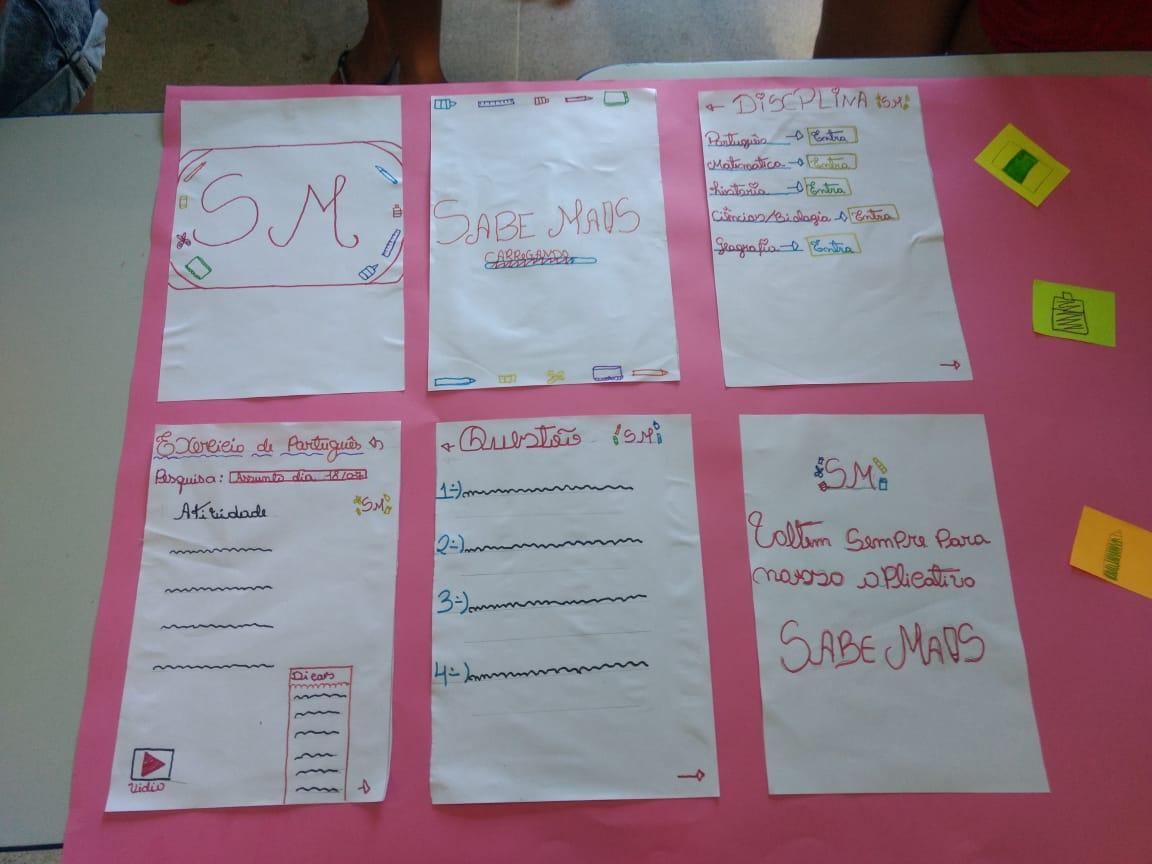 SM
SABE MAIS
CARREGANDO
DISCPLINA SM
Português Entra
Matematica Entra
história Entra
Ciências/Biologia Entra
Geografia Entra
Exercicio de Português
Pesquisa: Assunto dia 18/07
SM
Atividade
Dicas
Vidio
Questão SM
1-)
2-)
3-)
4-)
SM
Voltem Sempre Para
nosso aPlicativo
SABE MAIS